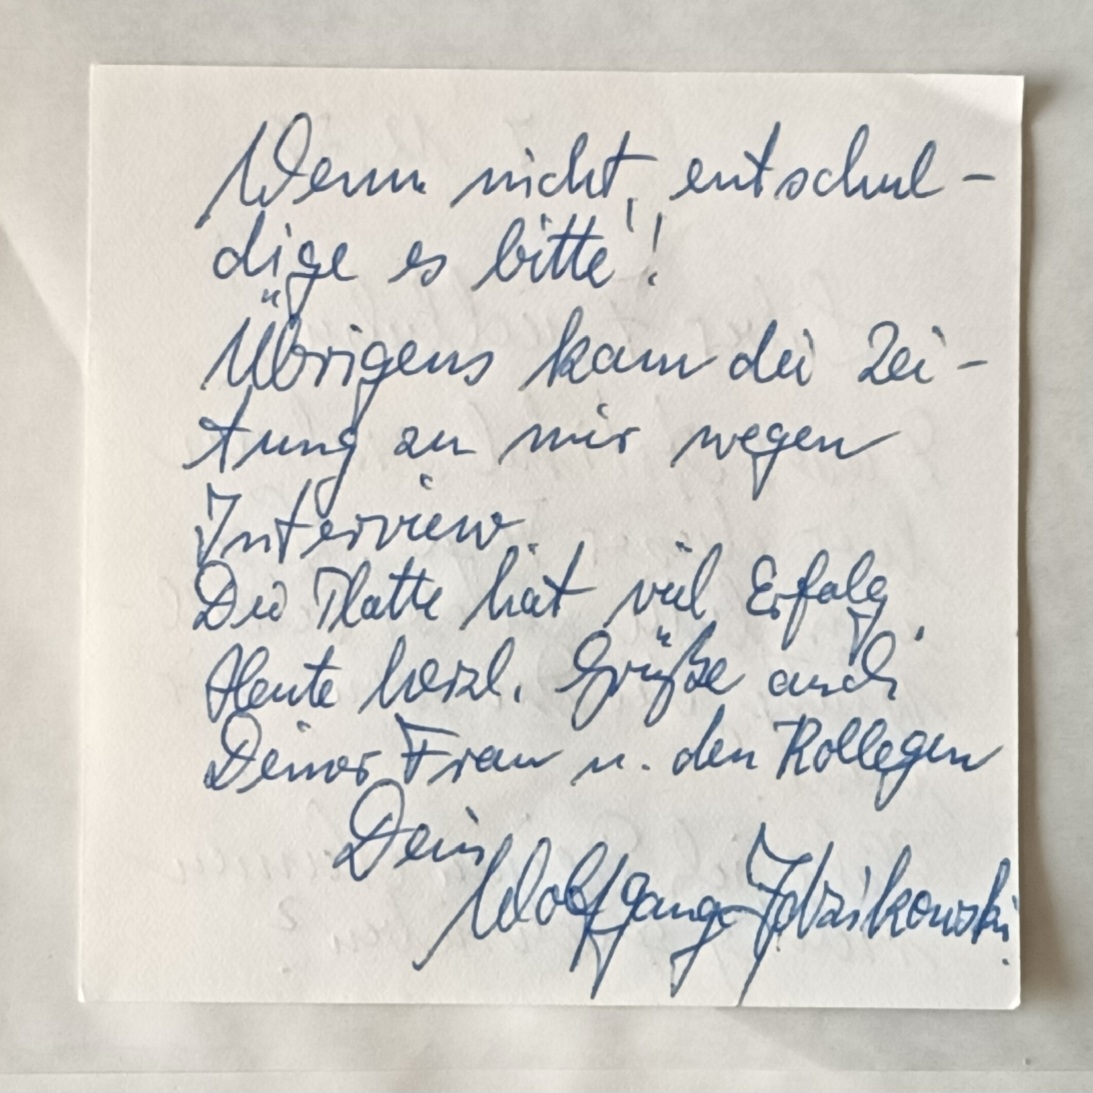 Wenn nicht, entschul-
dige es bitte!!
Übrigens kam die Zei-
tung zu mir wegen
Interview.
Die Platte hat viel Erfolg.
Heute herzl. Grüße auch
Deiner Frau u. den Kollegen
Dein
Wolfgang